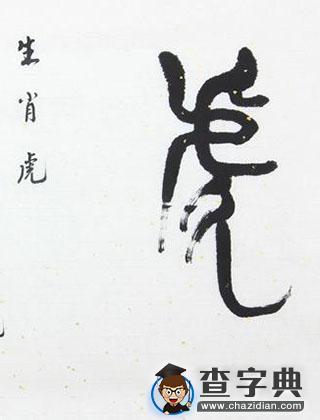 虎
生肖虎
查字典
www.chazidian.com